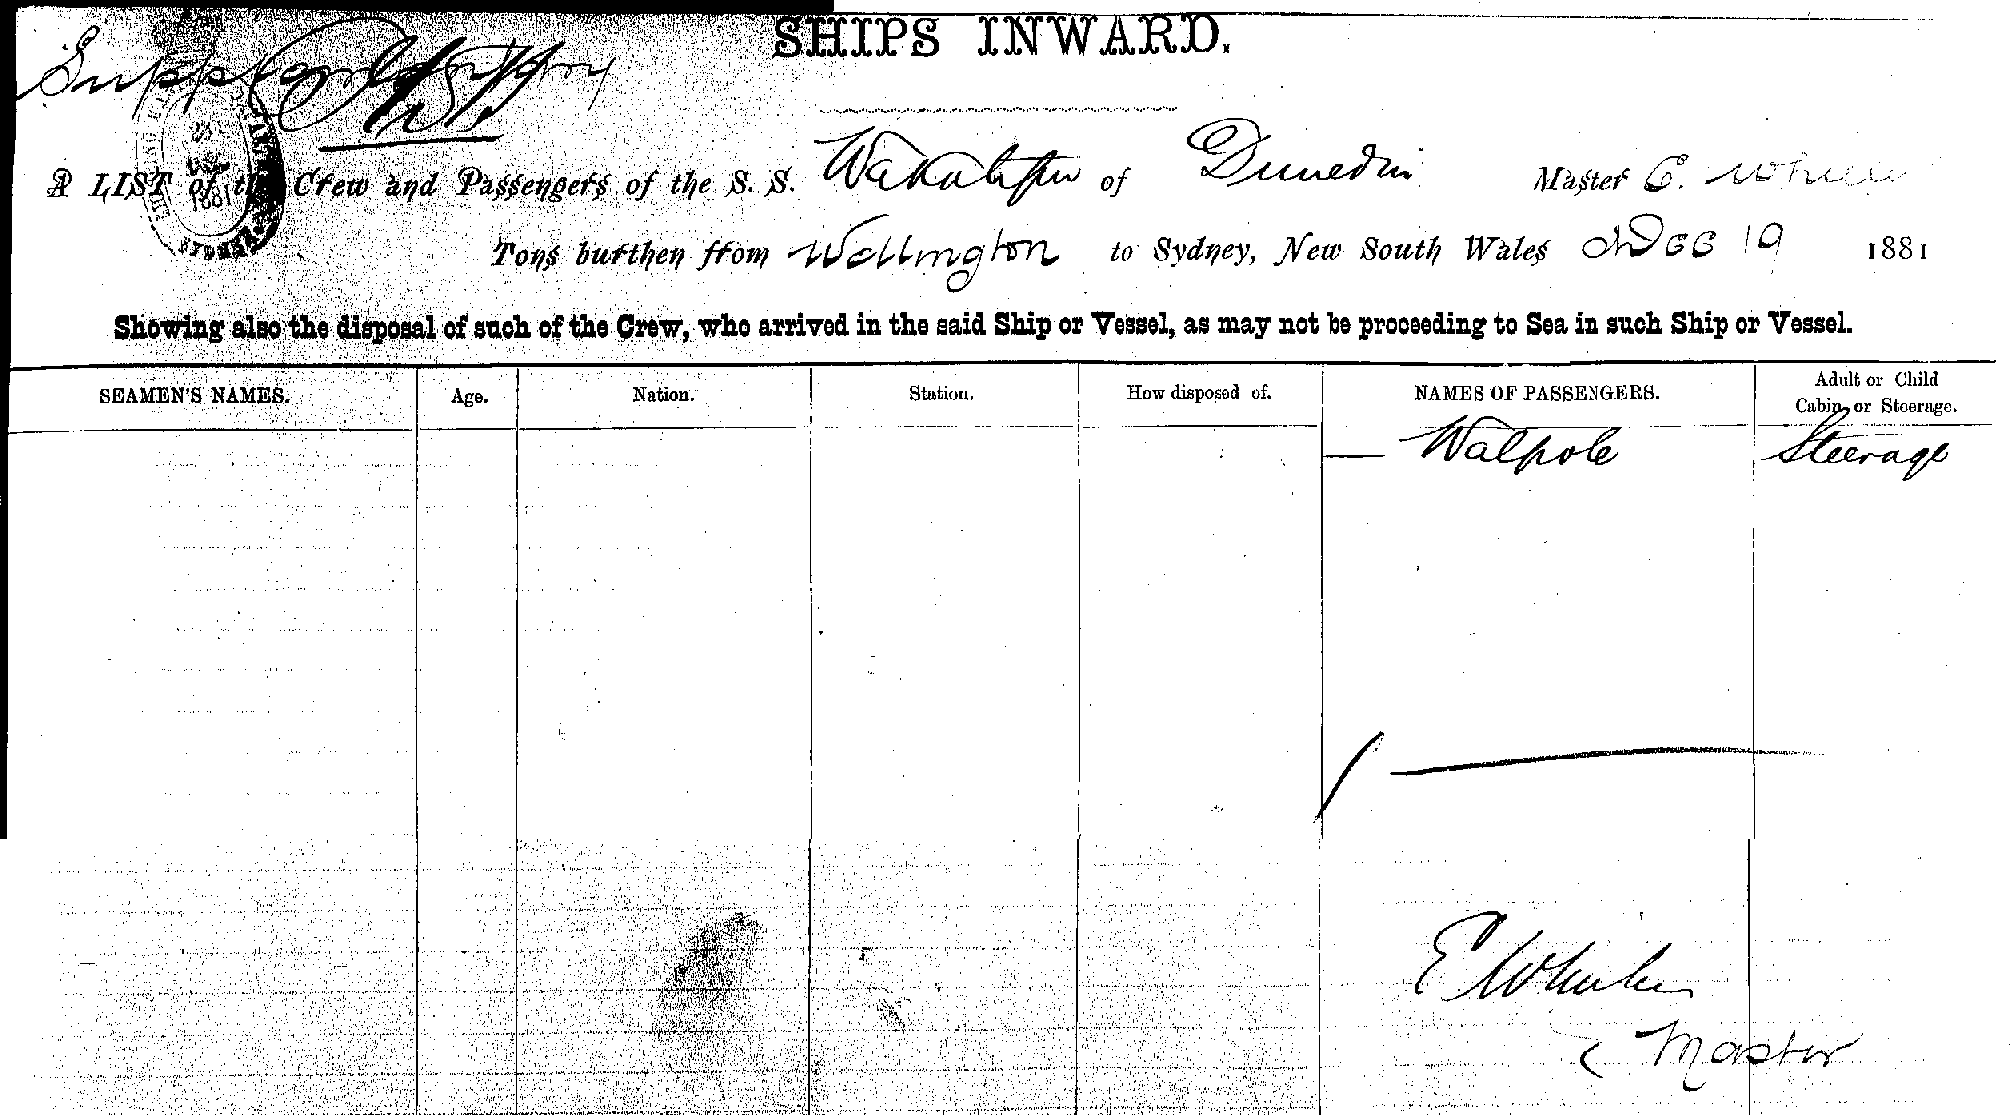 SHIPS INWARD.
Supplementary
A LIST of the Crew and Passengers of the S. S. Wakatipu of Dunedin Master E. Wheeler
Tons burthen from Wellington to Sydney, New South Wales Dec 19 1881
Showing also the disposal of such of the Crew, who arrived in the said Ship or Vessel, as may not be proceeding to Sea in such Ship or Vessel.
SEAMEN'S NAMES. Age. Nation. Station. How disposed of. NAMES OF PASSENGERS. Adult or Child
Cabin or Steerage.
— Walpole Steerage
E Wheeler
Master